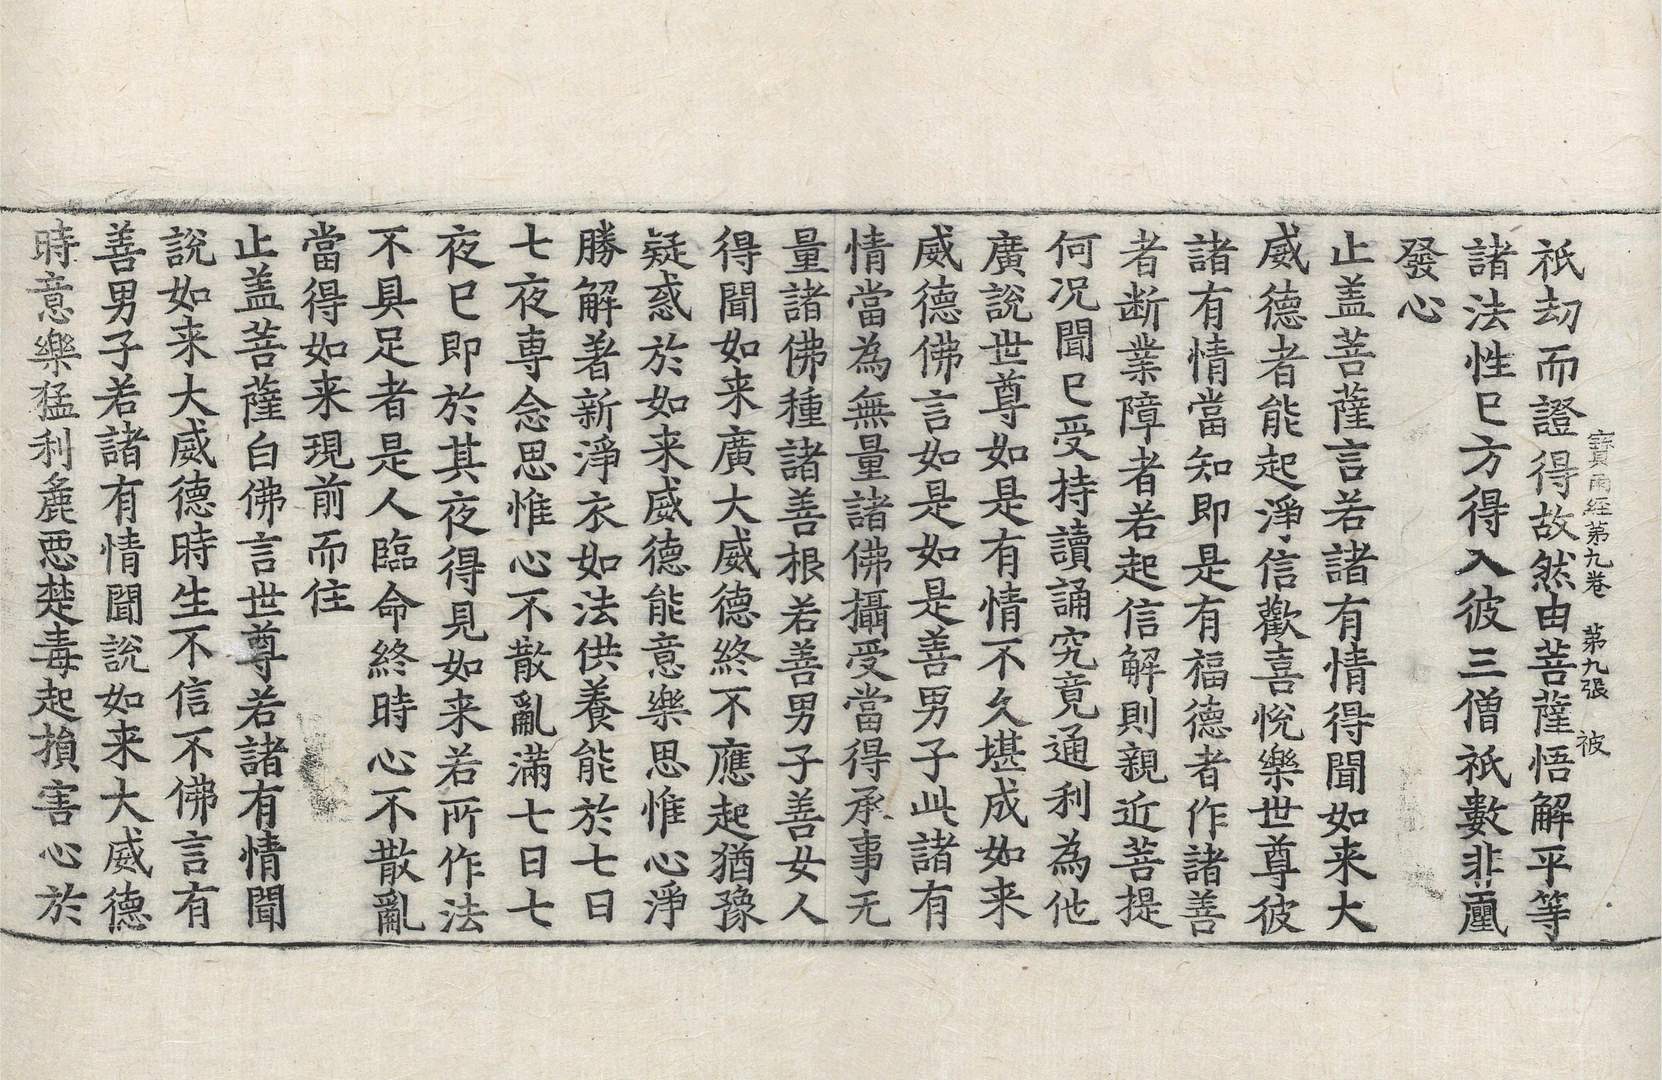 寶雨經第九卷 第九張 被
祇劫而證得故然由菩薩悟解平等
諸法性已方得入彼三僧祇數非𠪨
發心
止盖菩薩言若諸有情得聞如来大
威德者能起淨信歡喜悅樂世尊彼
諸有情當知即是有福德者作諸善
者断業障者若起信解則親近菩提
何况聞已受持讀誦究竟通利為他
廣說世尊如是有情不久堪成如来
威德佛言如是如是善男子此諸有
情當為無量諸佛攝受當得承事无
量諸佛種諸善根若善男子善女人
得聞如来廣大威德終不應起猶豫
疑惑於如来威德能意樂思惟心淨
勝解著新淨衣如法供養能於七日
七夜専念思惟心不散亂滿七日七
夜已即於其夜得見如来若所作法
不具足者是人臨命終時心不散亂
當得如来現前而住
止盖菩薩白佛言世尊若諸有情聞
說如来大威德時生不信不佛言有
善男子若諸有情聞說如来大威德
時意樂猛利麁𢙣楚毒起損害心於